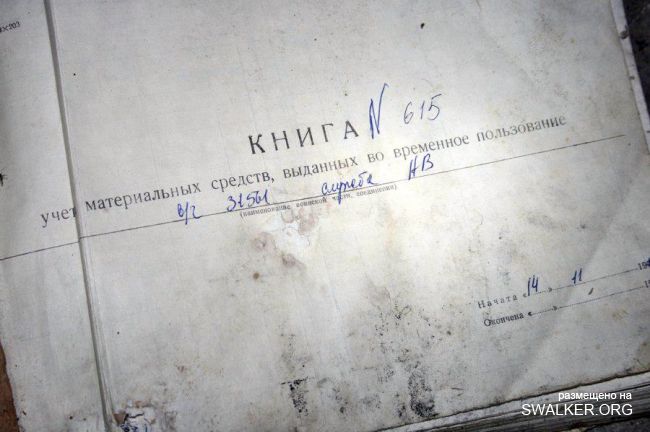 КНИГА N 615
учет материальных средств, выданных во временное пользование
в/ч 31561 служба АВ
(наименование воинской части, соединения)
Начата « 14 » 11 19
Окончена « »
размещено на
SWALKER.ORG